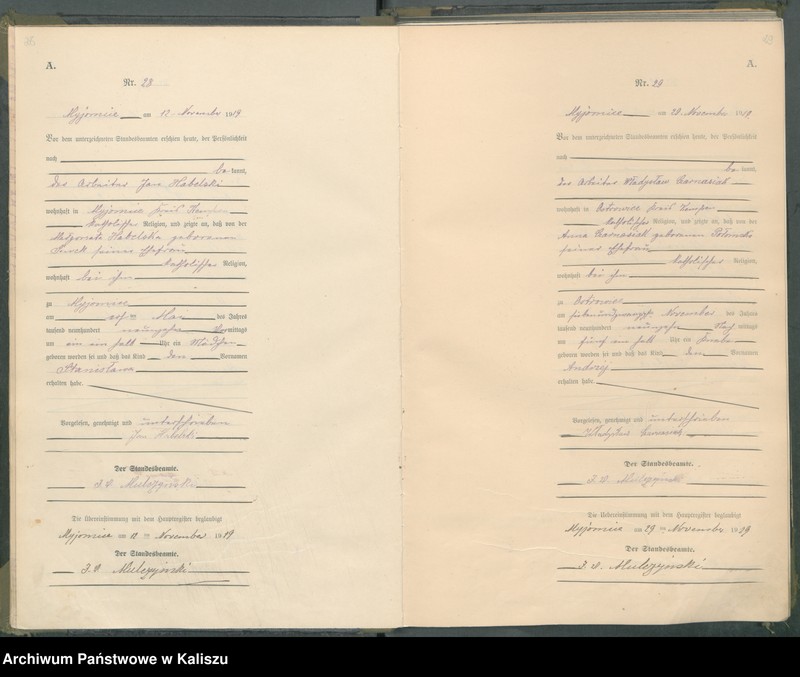 A.
Nr. 28
Myjomice am 12 November 1919
Vor dem unterzeichneten Standesbeamten erschien heute, der Persönlichkeit
nach
be kannt,
der Arbeiter Jan Habelski
wohnhaft in Myjomice Kreis Kempen
katholischer Religion, und zeigte an, daß von der
geborenen
seiner Ehefrau
katholischer Religion,
wohnhaft bei ihm
zu Myjomice
am Mai des Jahres
tausend neunhundert neunzehn Vormittags
um ein ein halb Uhr ein Mädchen
geboren worden sei und daß das Kind den Vornamen
Stanisława
erhalten habe.
Vorgelesen, genehmigt und unterschrieben
Jan Habelski
Der Standesbeamte.
Die Uebereinstimmung mit dem Hauptregister beglaubigt
Myjomice am 12 ten November 1919
Der Standesbeamte.
A.
Nr. 29
Myjomice am 29 November 1919
Vor dem unterzeichneten Standesbeamten erschien heute, der Persönlichkeit
nach
be kannt,
der Arbeiter Władysław
wohnhaft in Kreis Kempen
katholischer Religion, und zeigte an, daß von der
Anna geborenen
seiner Ehefrau
katholischer Religion,
wohnhaft bei ihm
zu
am November des Jahres
tausend neunhundert neunzehn Nach mittags
um fünf ein halb Uhr ein Knabe
geboren worden sei und daß das Kind den Vornamen
Andrzej
erhalten habe.
Vorgelesen, genehmigt und unterschrieben
Władysław
Der Standesbeamte.
Die Uebereinstimmung mit dem Hauptregister beglaubigt
Myjomice am 29 ten November 1919
Der Standesbeamte.
Archiwum Państwowe w Kaliszu